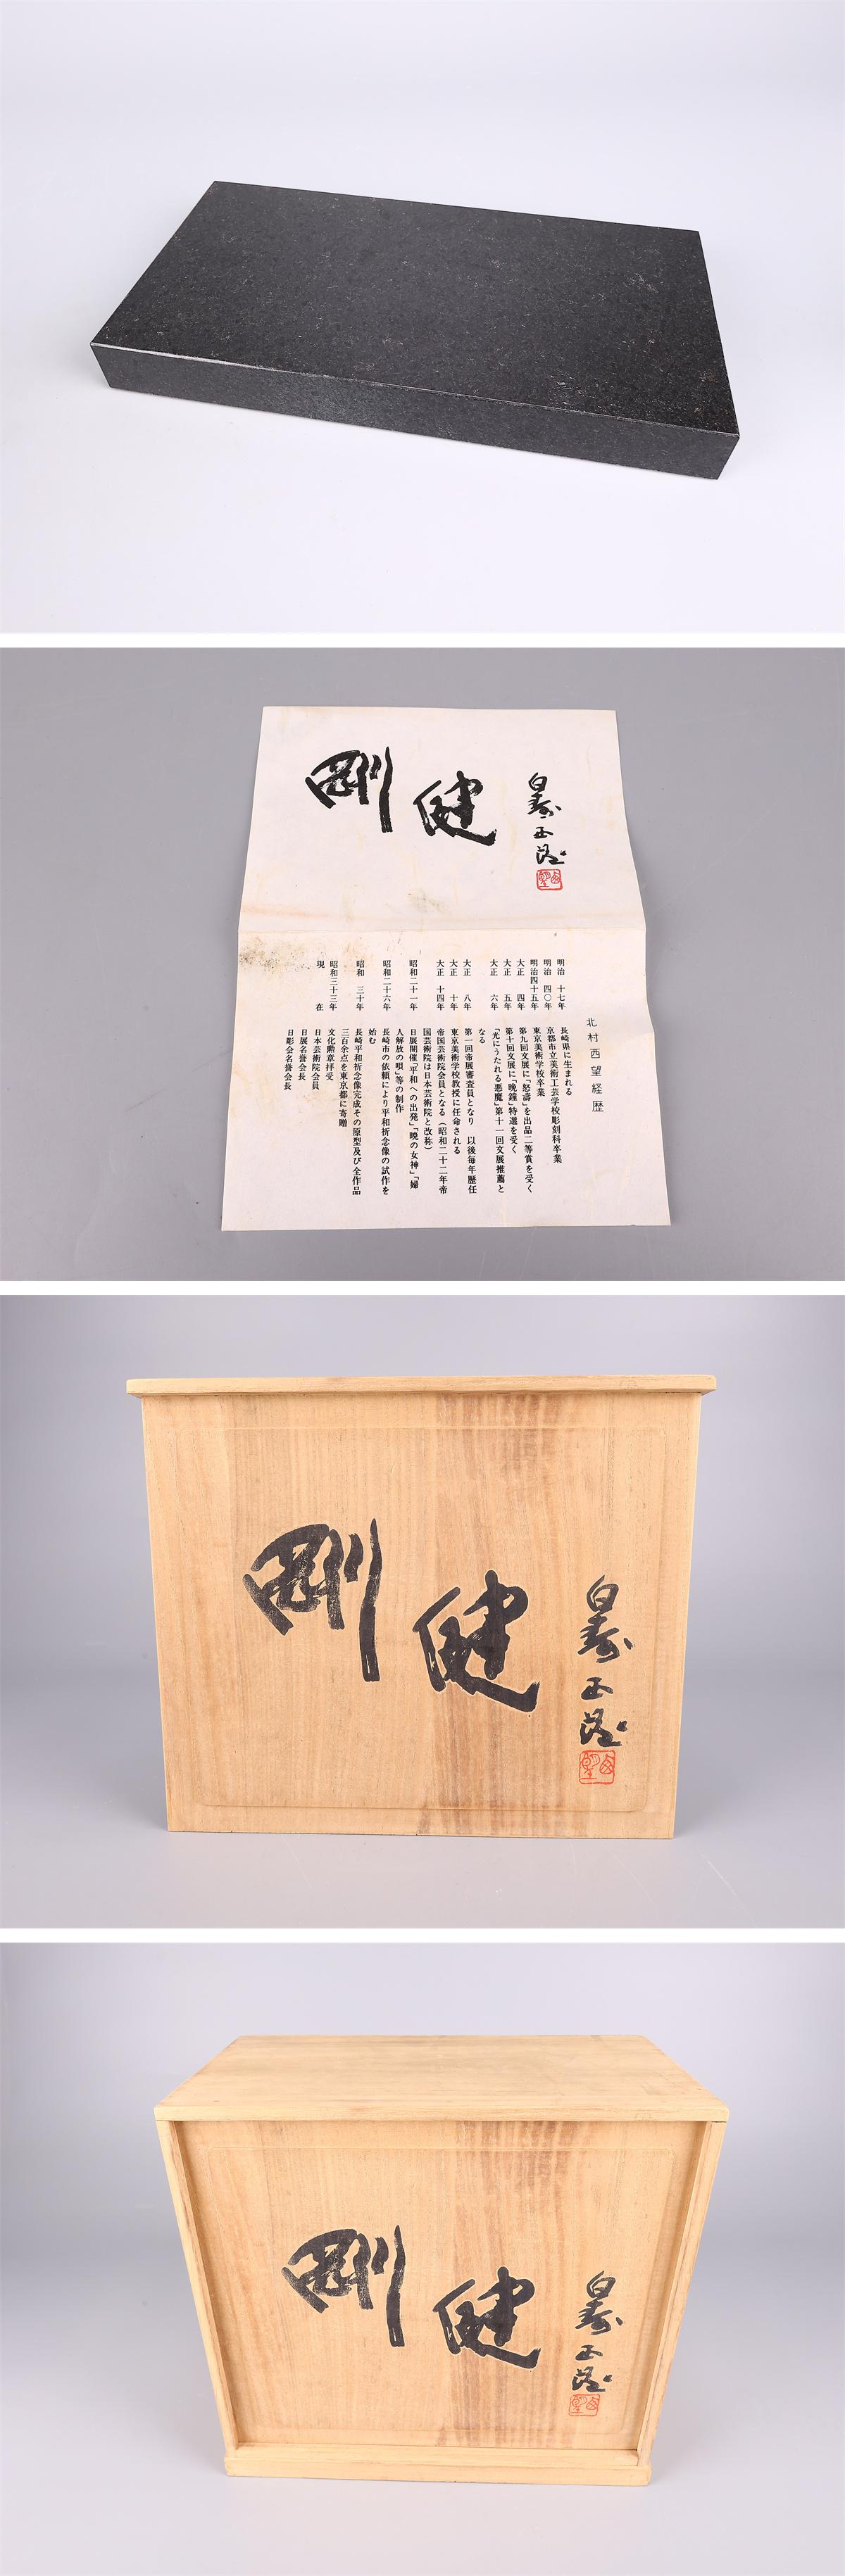 剛健
白寿 西望
西望
北村西望経歴
明治 十七年 長崎県に生まれる
明治 四〇年 京都市立美術工芸学校彫刻科卒業
明治四十五年 東京美術学校卒業
大正 四年 第九回文展に「怒濤」を出品二等賞を受く
大正 五年 第十回文展に「晩鐘」特選を受く
大正 六年 「光にうたれる悪魔」第十一回文展推薦と
なる
大正 八年 第一回帝展審査員となり 以後毎年歴任
大正 十年 東京美術学校教授に任命される
大正 十四年 帝国芸術院会員となる（昭和二十二年帝
国芸術院は日本芸術院と改称）
昭和二十一年 日展開催「平和への出発」「暁の女神」「婦
人解放の唄」等の制作
昭和二十六年 長崎市の依頼により平和祈念像の試作を
始む
昭和 三十年 長崎平和祈念像完成その原型及び全作品
三百余点を東京都に寄贈
昭和三十三年 文化勲章拝受
現在 日本芸術院会員
日展名誉会長
日彫会名誉会長
剛健
白寿 西望
西望
剛健
白寿 西望
西望